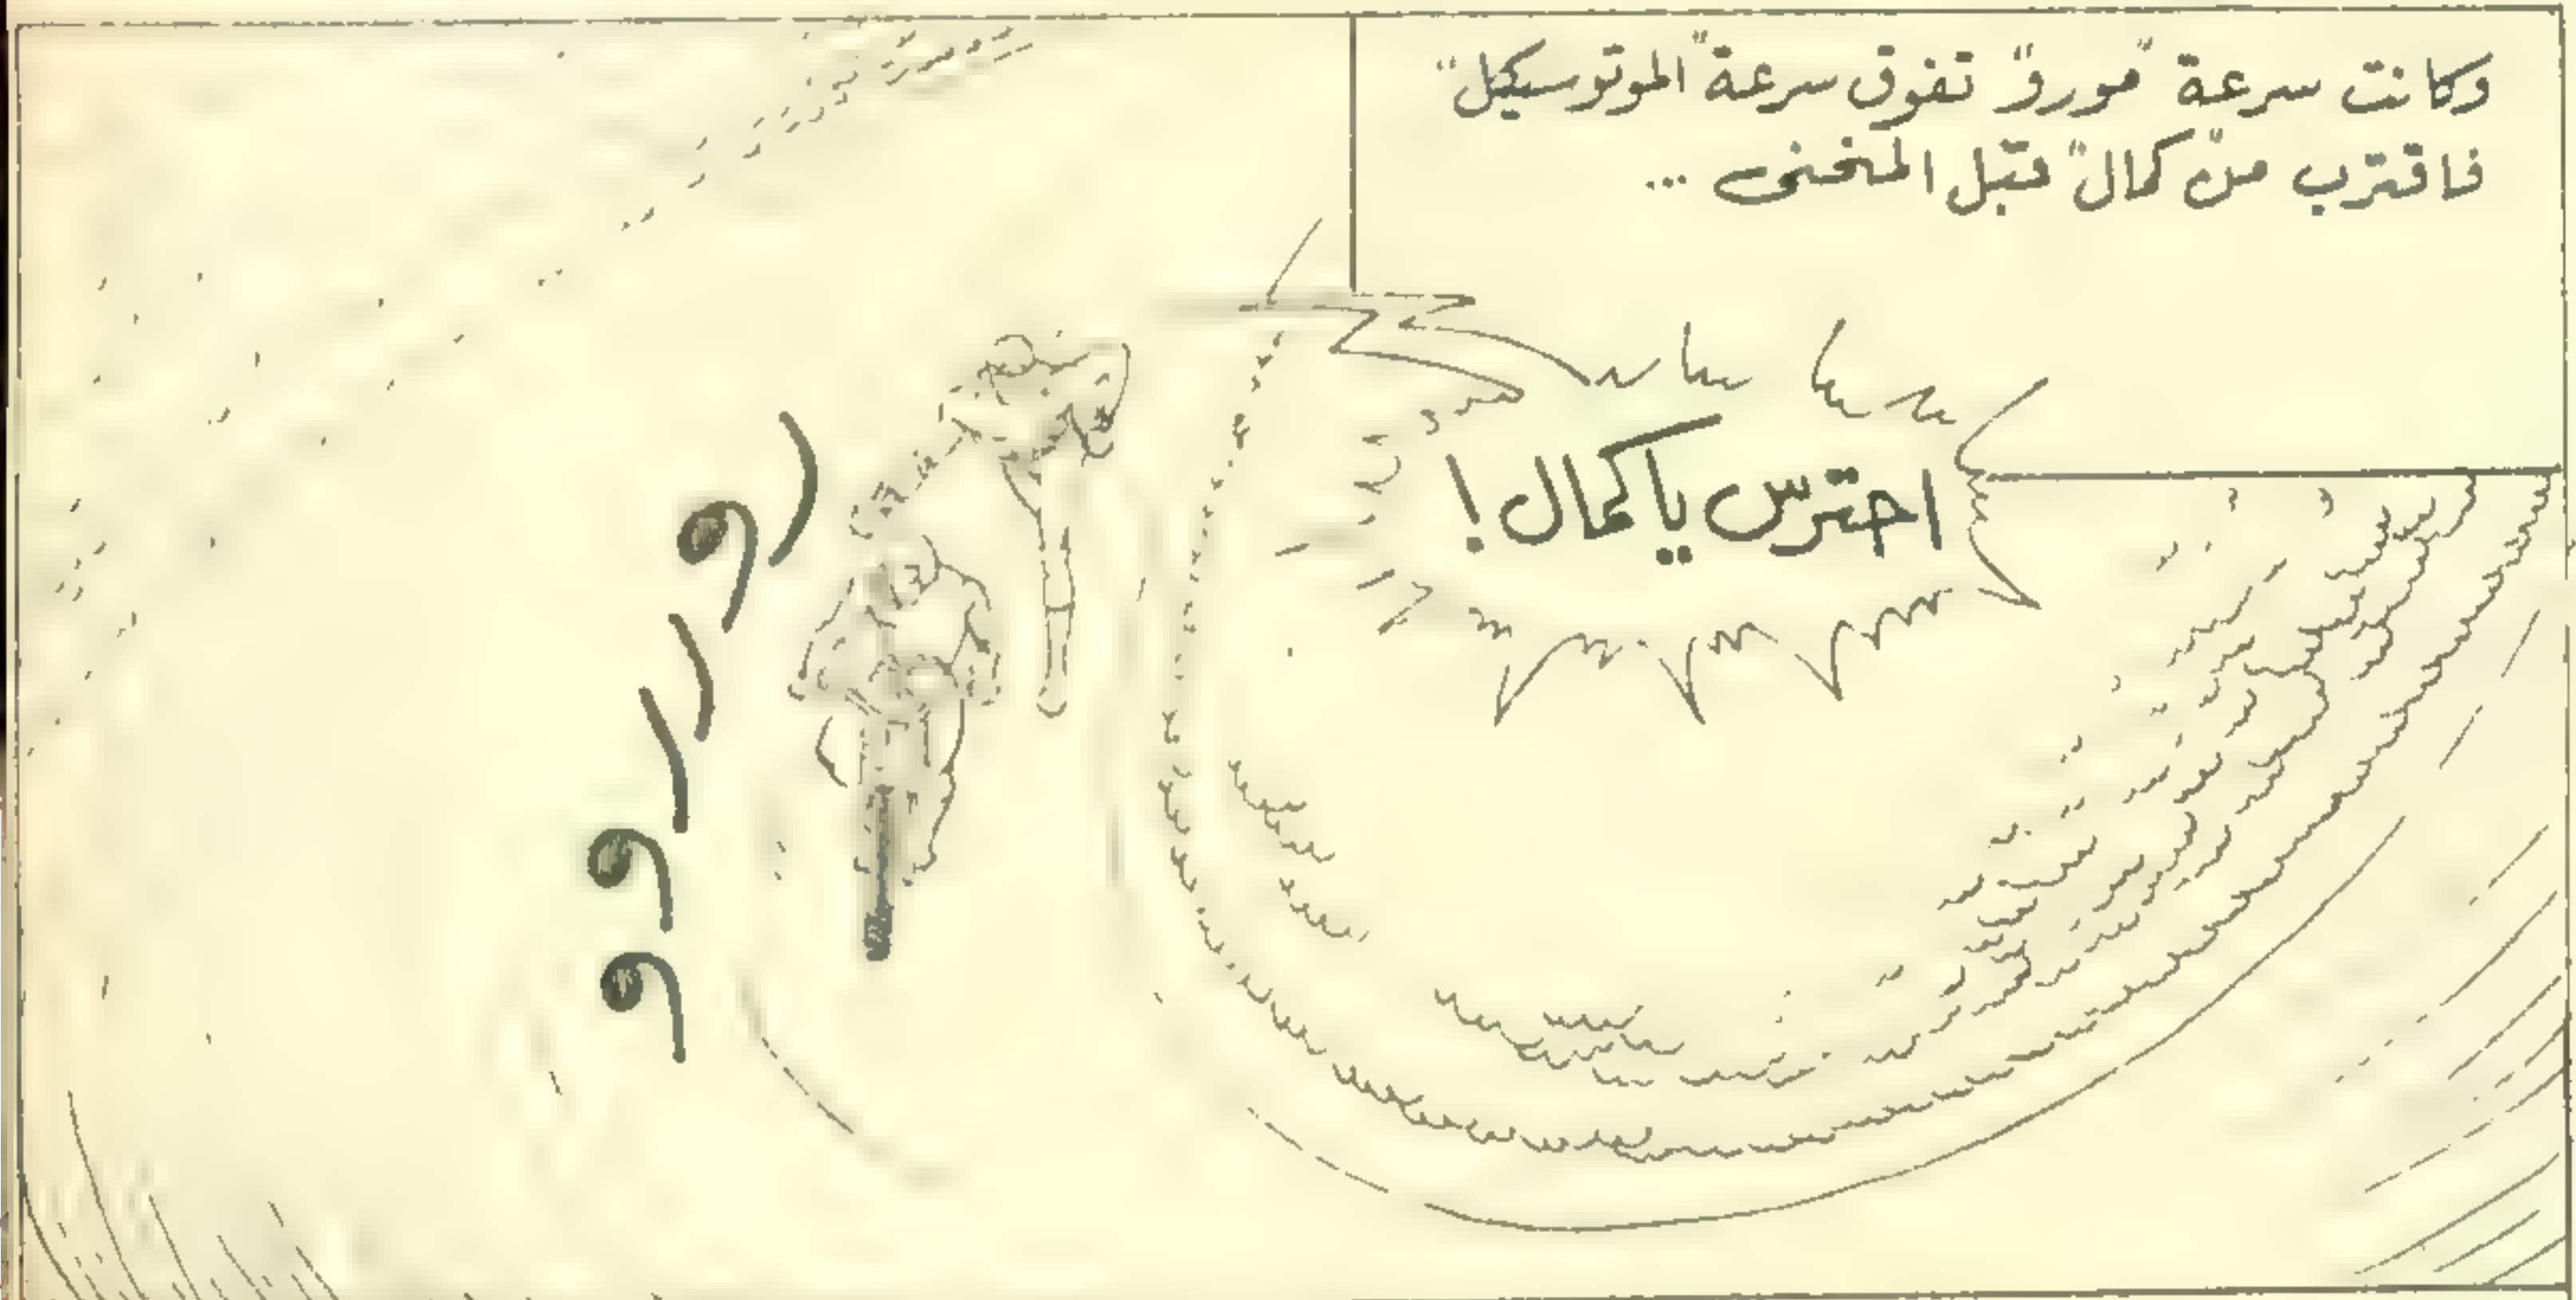 وكانت سرعة "مورو" تفوق سرعة "الموتوسيكل"
فاقترب من "كمال" قبل المنحنى ...
احترس يا كمال !
رورروو